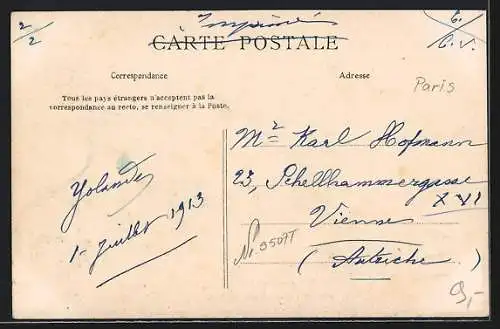 2/2
Imprimé
C. V.
CARTE POSTALE
Correspondance
Adresse
Paris
Tous les pays étrangers n'acceptent pas la
correspondance au recto, se renseigner à la Poste.
Mr Karl Hofmann
23, Schellhammergasse
XVI
Vienne
(Autriche)
Yolande
1- Juillet 1913
Nr. 95077
9,-